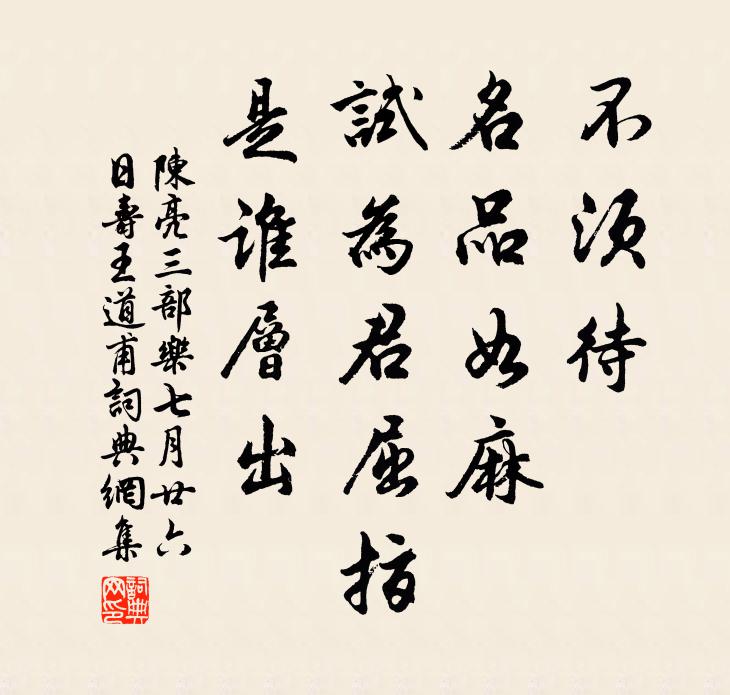 不須待
名品如麻
試為君屈指
是誰層出
陳亮三部樂七月廿六
日壽王道甫詞典網集
詞典網印